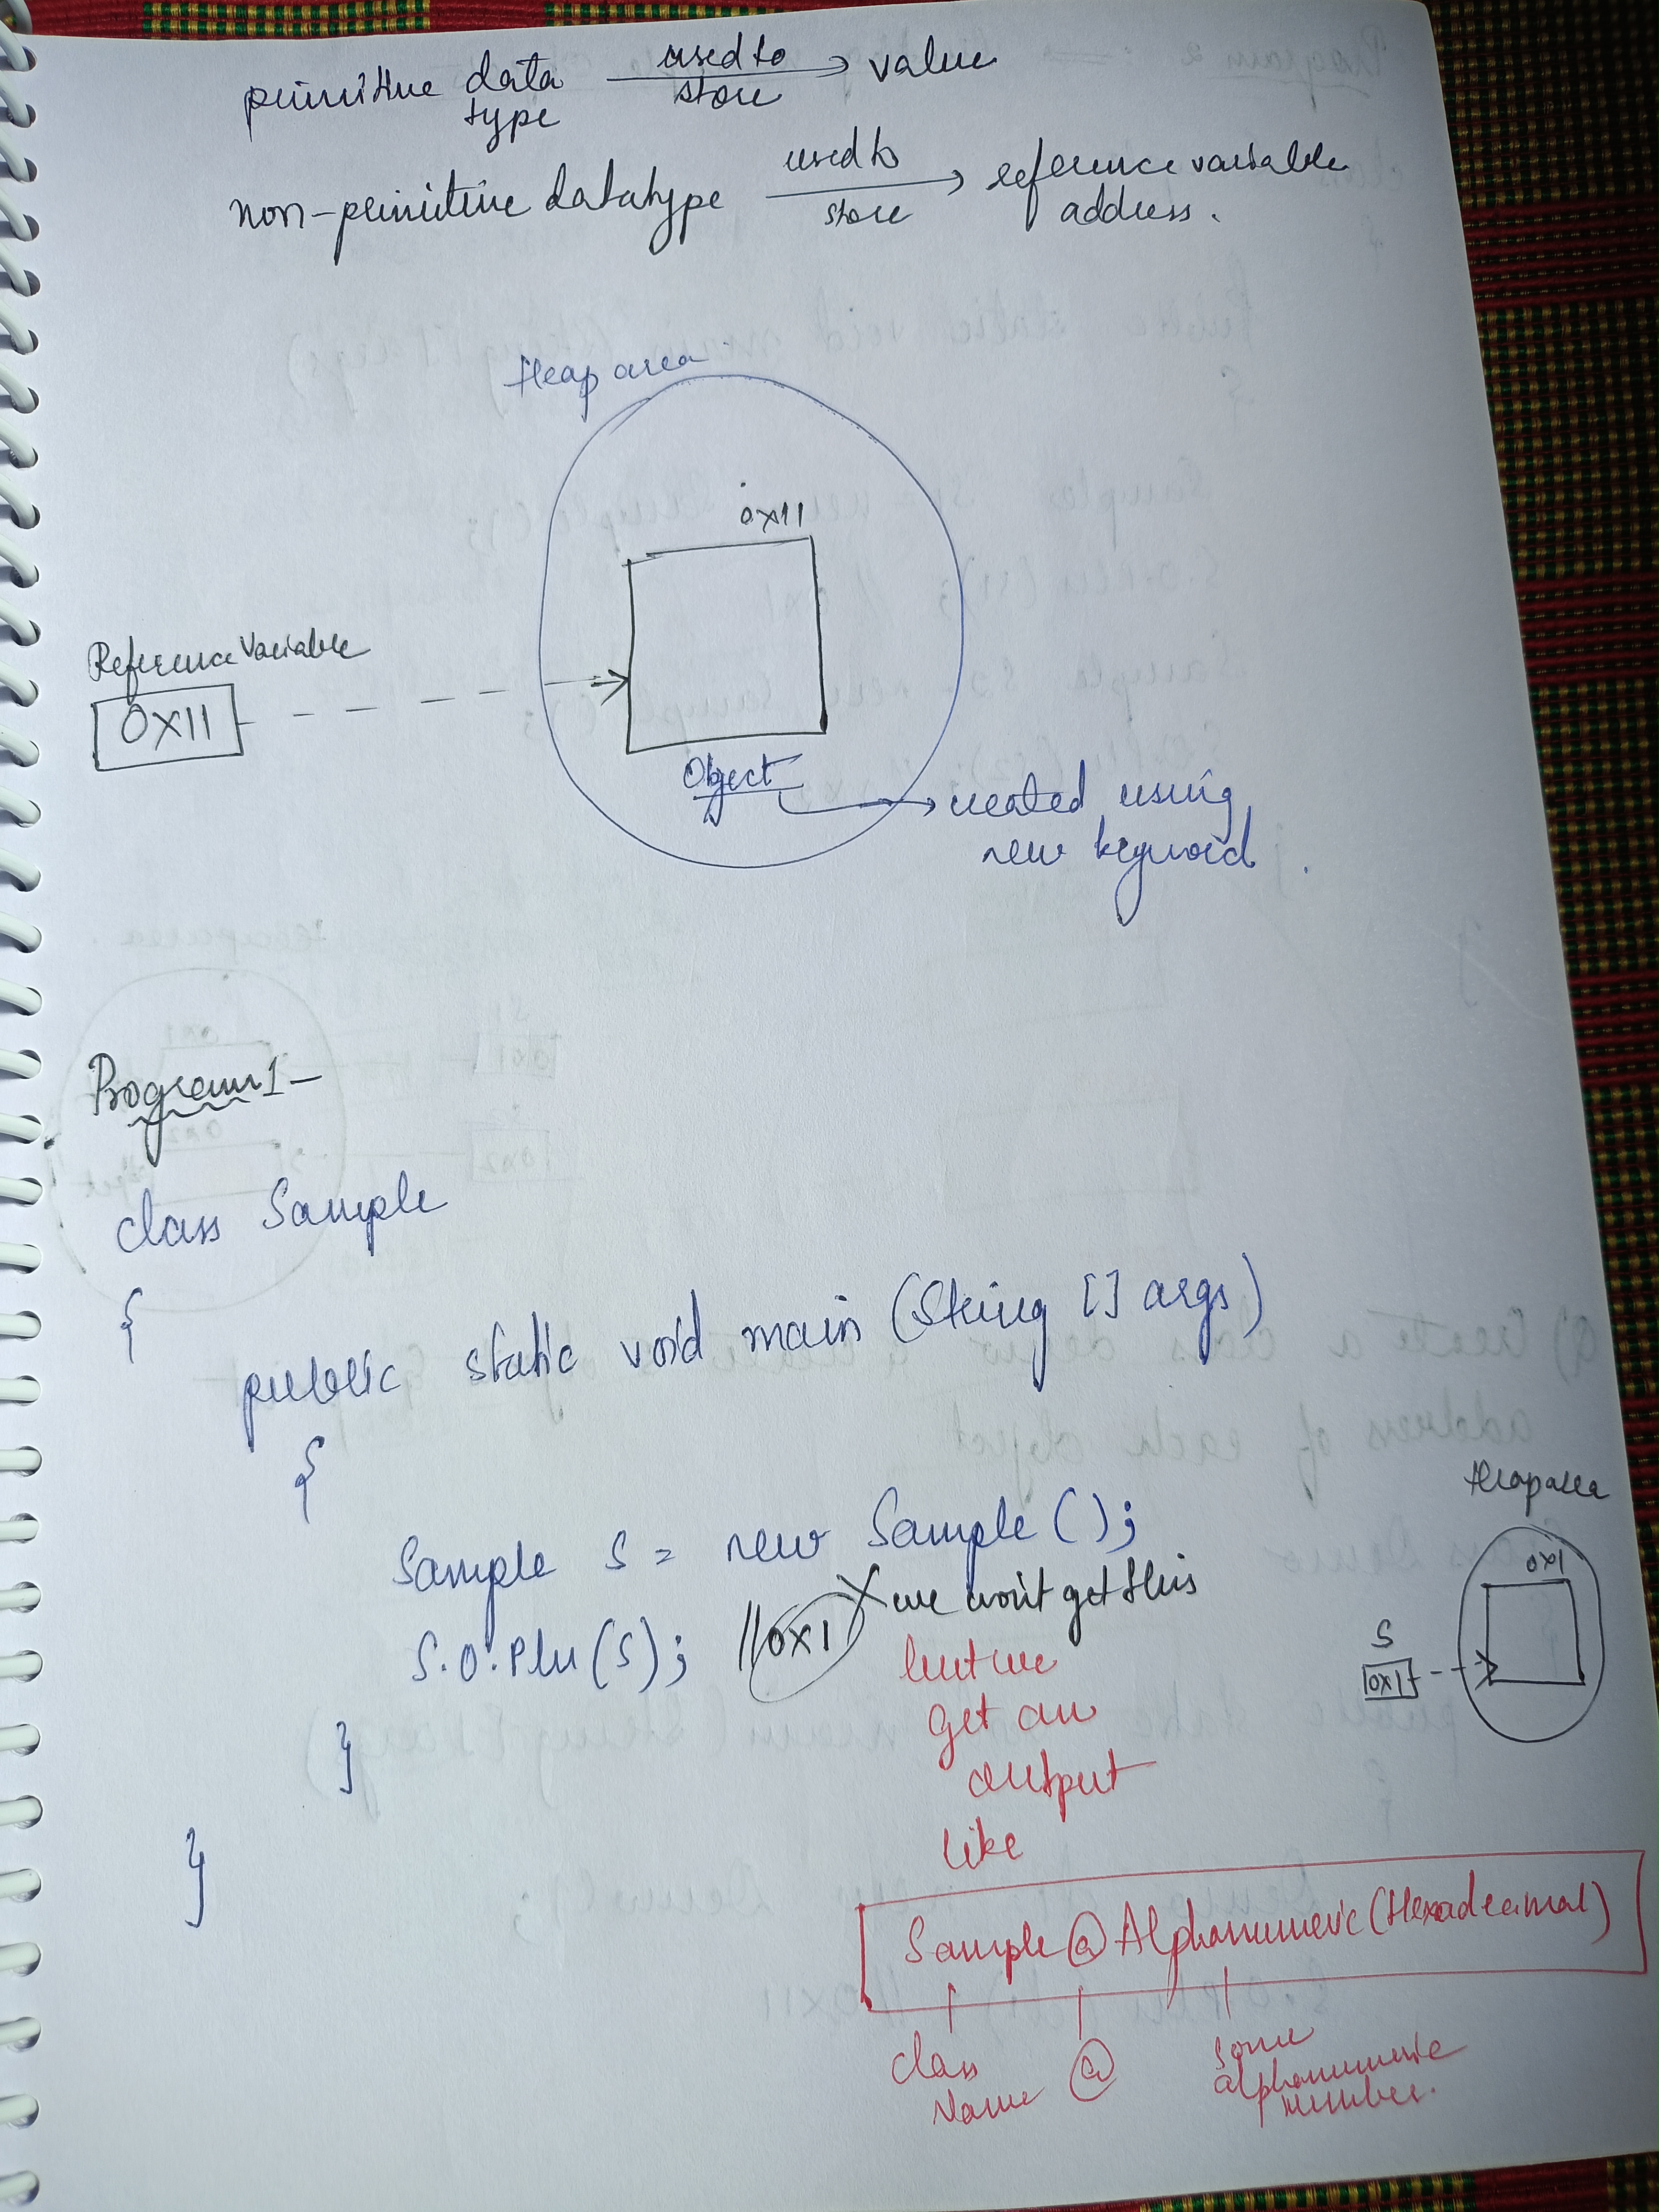 primitive data type used to store → value
non-primitive datatype used to store → reference variable address.
Heap area
0x11
Reference Variable
0X11
Object → created using
new keyword.
Program 1 -
class Sample
{
public static void main (String [] args)
{
Sample s = new Sample ();
S.O.Pln (s); // 0x1 X we won't get this
but we
get an
output
like
}
}
Heap area
0x1
S
0x1
Sample @ Alphanumeric (Hexadecimal)
class Name @ some alphanumeric number.